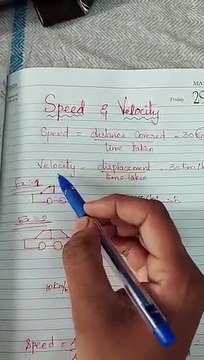 MA
Friday 29
Speed & Velocity
Speed = distance covered = 30 Km
time taken
Velocity = displacement = 30 Km/h
time taken
Ex:-1
Ex:-2
10 Km/h
Speed =